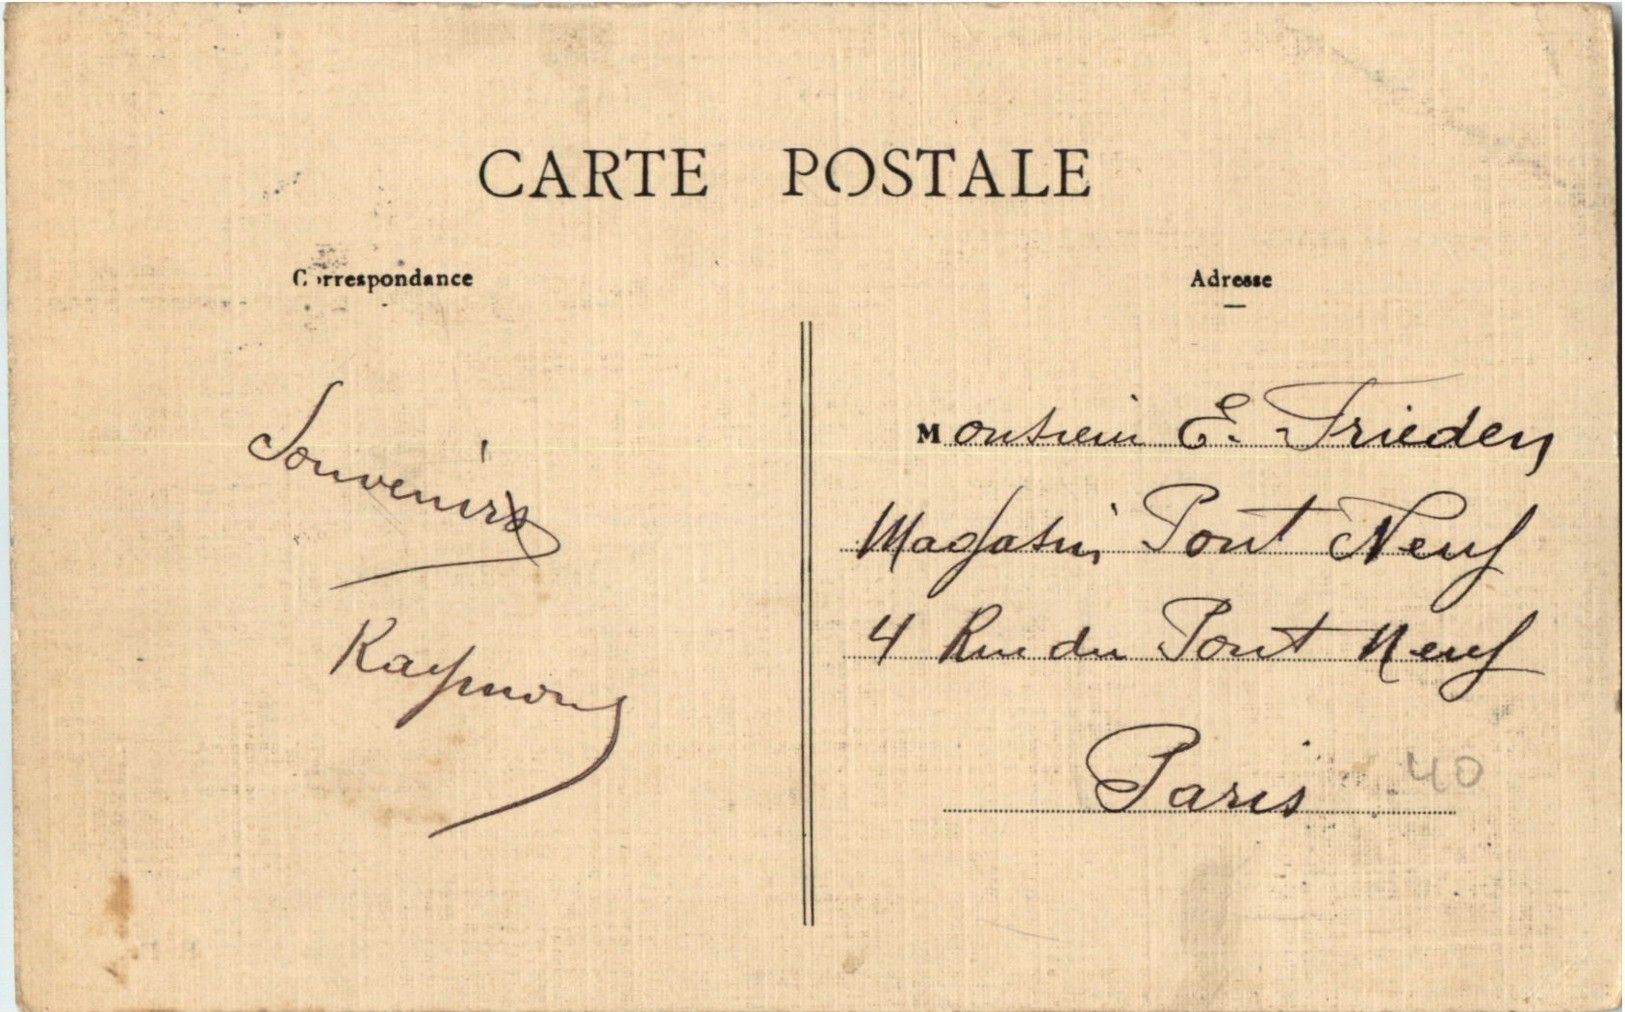 CARTE POSTALE
Correspondance
Adresse
Souvenirs
Raymond
Monsieur E. Frieden
Magasin Pont Neuf
4 Rue du Pont Neuf
Paris
40